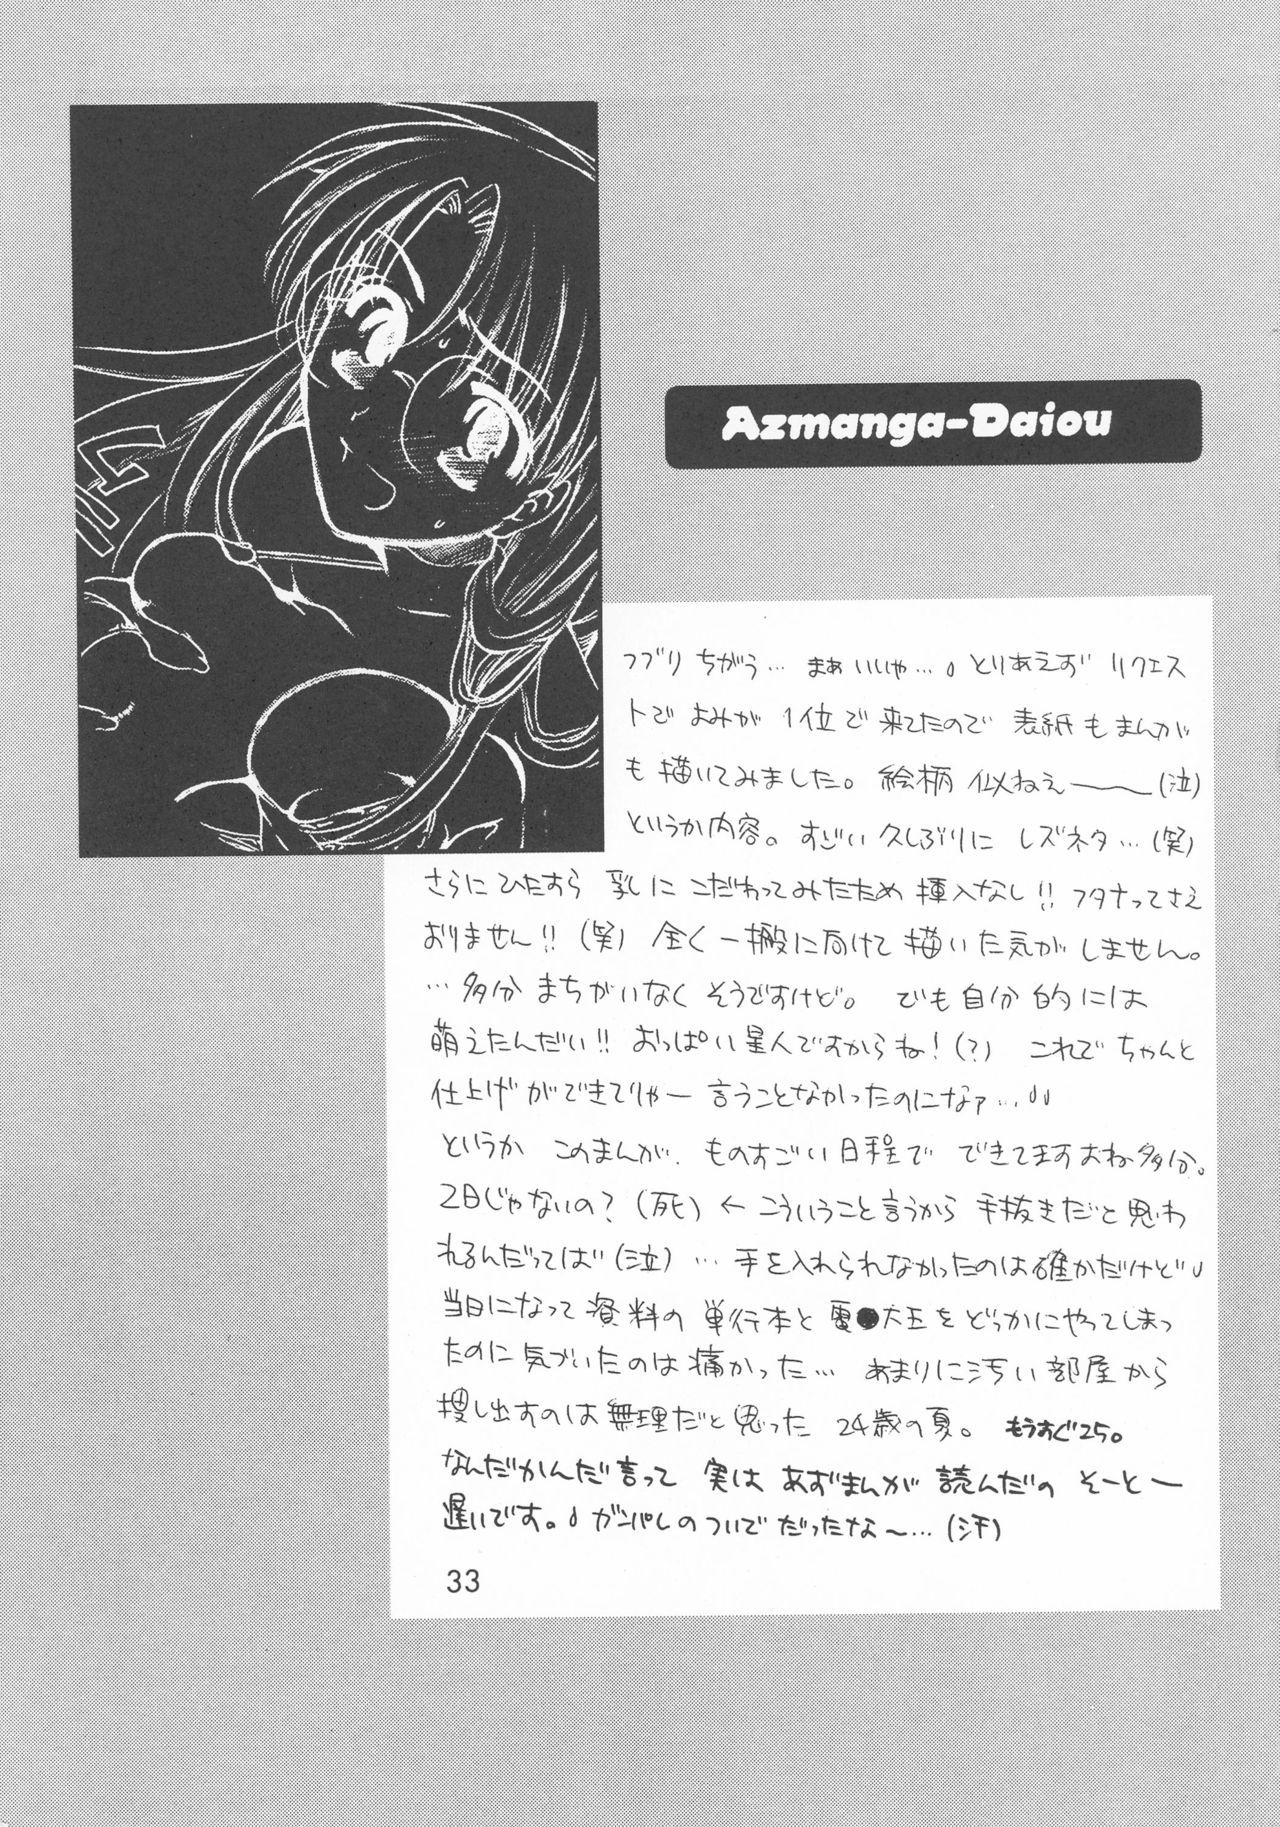 Azmanga-Daiou
つづり ちがう… まぁ いいや… とりあえず リクエス
トで よみが 1位で 来てたので 表紙もまんが
も描いてみました。 絵柄 似ねえ――(泣)
というか内容。 すごい 久しぶりに レズネタ…(笑)
さらに ひたすら 乳に こだわってみたため 挿入なし!! フタナってさえ
おりません!! (笑) 全く 一般に向けて 描いた気がしません。
…多分 まちがいなく そうですけど。 でも自分的には
萌えたんだい!! おっぱい 星人ですからね!(?) これで ちゃんと
仕上げができてりゃー 言うことなかったのになァ…
というか このまんが、 ものすごい日程で できてますよね多分。
2日じゃないの? (死) ← こういうこと言うから 手抜きだと思わ
れるんだってば (泣) … 手を入れられなかったのは確かだけど
当日になって 資料の 単行本と 電●大王を どっかにやってしまっ
たのに 気づいたのは痛かった… あまりに汚い部屋から
捜し出すのは無理だと思った 24歳の夏。 もうすぐ25。
なんだかんだ言って 実は あずまんが 読んだの そーとー
遅いです。 ガンパレのついでだったな〜…(汗)
33